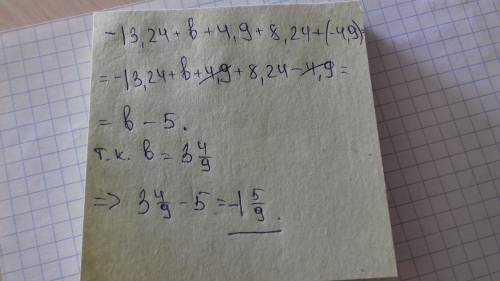 -13,24 + в + 4,9 + 8,24 + (-4,9) =
= -13,24 + в + 4,9 + 8,24 - 4,9 =
= в - 5.
т.к. в = 3 4/9
=> 3 4/9 - 5 = -1 5/9.